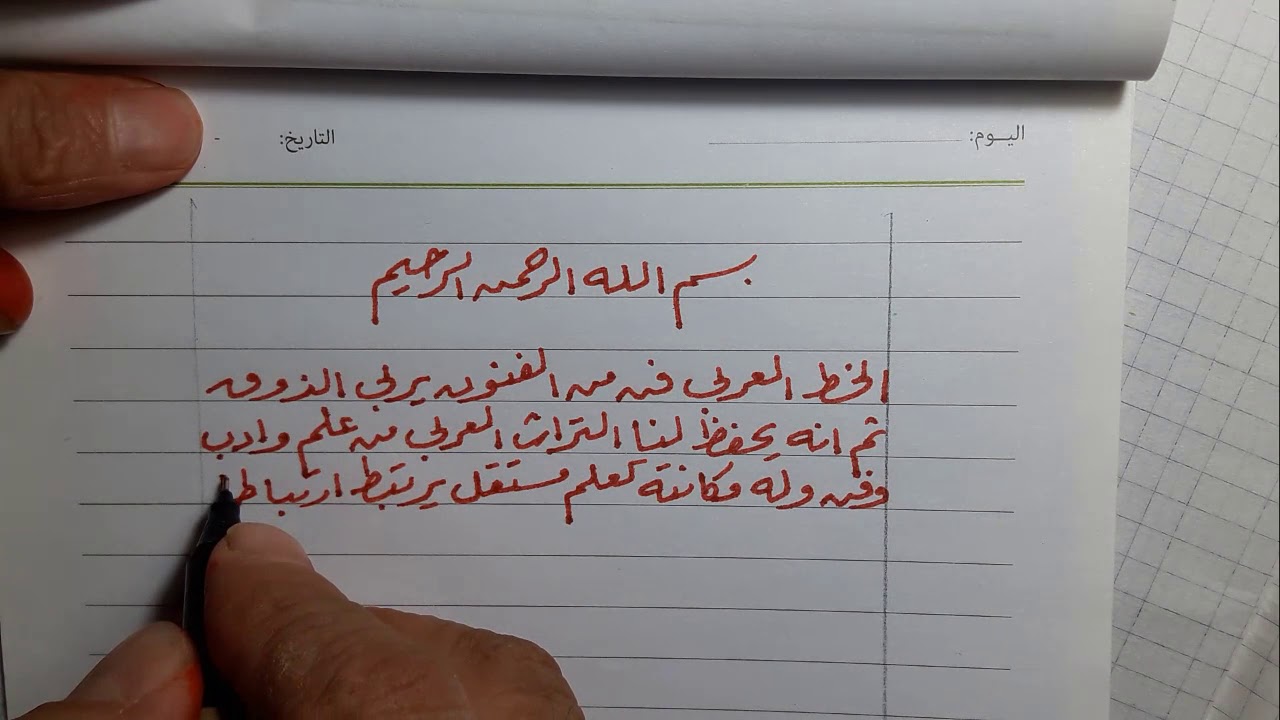 اليوم: التاريخ: -
بسم الله الرحمن الرحيم
الخط العربي فن من الفنون يربي الذوق
ثم انه يحفظ لنا التراث العربي من علم وادب
وفن وله مكانته كعلم مستقل يرتبط ارتباطا